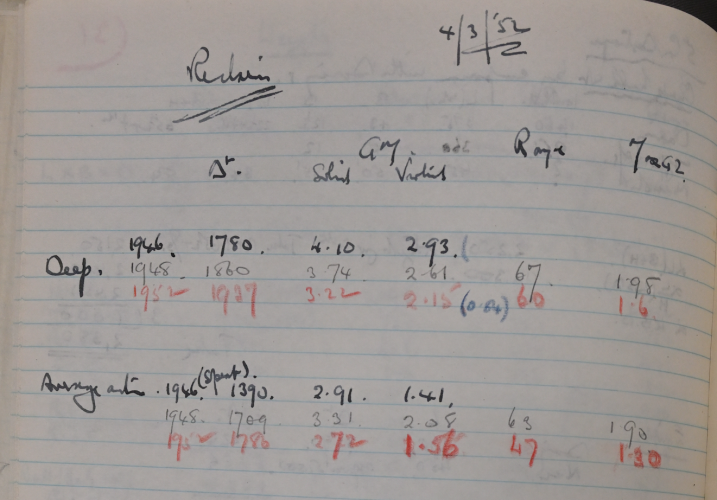 4/3/'52
G M.
Range
1946. 1780. 4.10. 2.93.
Deep. 1948. 1860 3.74 2.61. 67. 1.98
1952 1937 3.22 2.15 (0.04) 60 1.6
Average 1946. (Spent). 1390. 2.91. 1.41.
1948. 1709 3.31 2.08 63 1.90
1952 1786 2.72 1.56 47 1.30